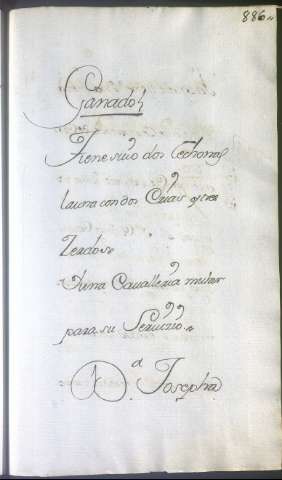 886
Ganados
Tiene suio dos Lechonas
la una con dos Crias y tres
Zerdos
Y una Cavalleria mular
para su Servicio
D.ª Josepha